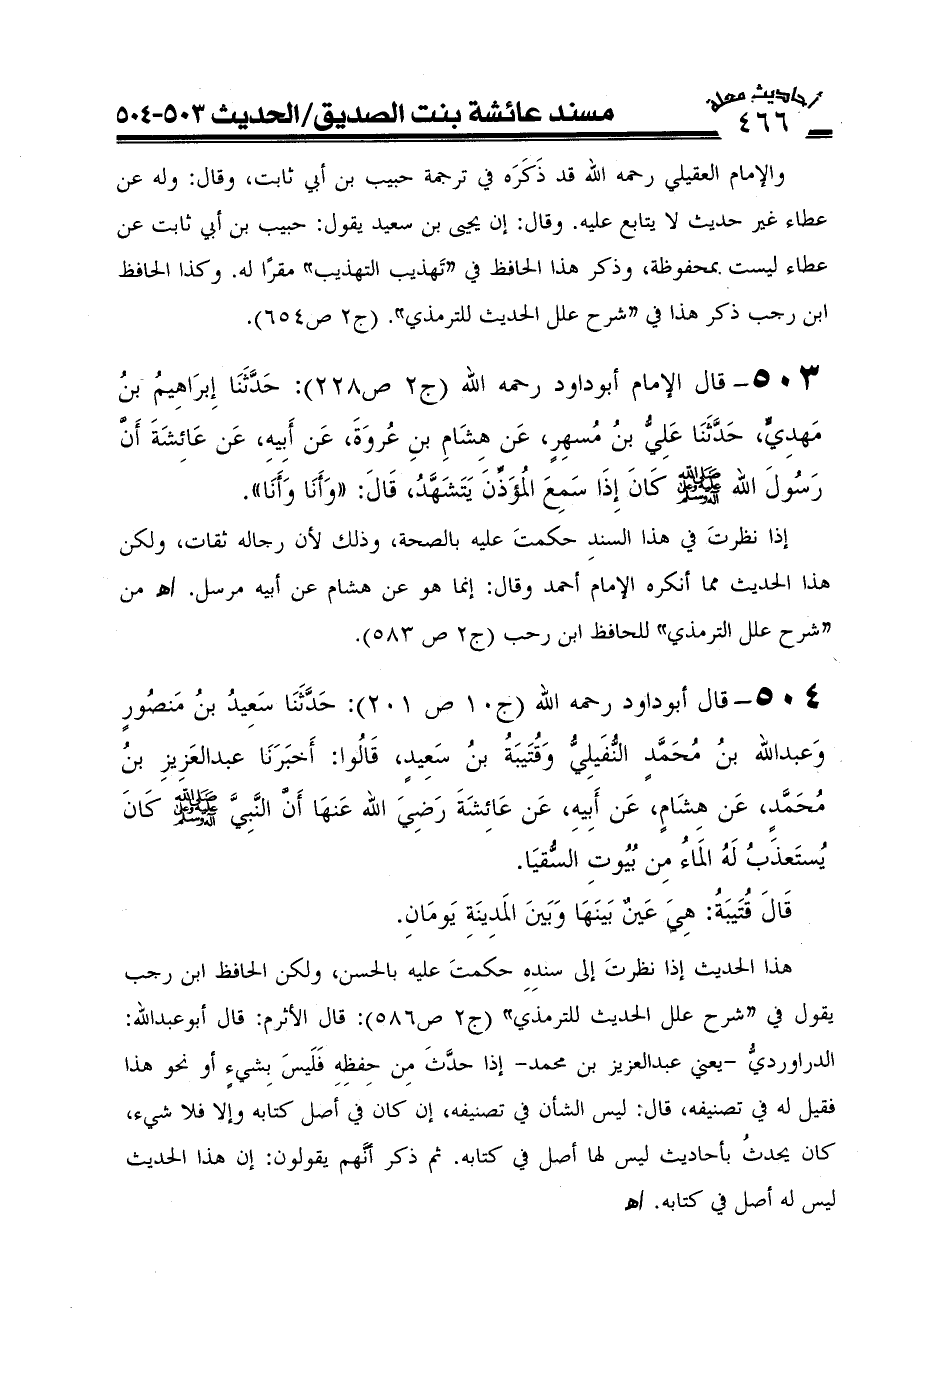 أحاديث معلة
٤٦٦
مسند عائشة بنت الصديق/الحديث ٥٠٣-٥٠٤
والإمام العقيلي رحمه الله قد ذَكَرَه في ترجمة حبيب بن أبي ثابت، وقال: وله عن
عطاء غير حديث لا يتابع عليه. وقال: إن يحيى بن سعيد يقول: حبيب بن أبي ثابت عن
عطاء ليست بمحفوظة، وذكر هذا الحافظ في «تَهذيب التهذيب» مقرًا له. وكذا الحافظ
ابن رجب ذكر هذا في «شرح علل الحديث للترمذي». (ج٢ ص٦٥٤).
٥٠٣- قال الإمام أبوداود رحمه الله (ج٢ ص٢٢٨): حَدَّثَنَا إِبرَاهِيمُ بنُ
مَهدِيٍّ، حَدَّثَنَا عَلِيُّ بنُ مُسهِرٍ، عَن هِشَامِ بنِ عُروَةَ، عَن أَبِيهِ، عَن عَائِشَةَ أَنَّ
رَسُولَ الله ﷺ كَانَ إِذَا سَمِعَ المُؤَذِّنَ يَتَشَهَّدُ، قَالَ: «وَأَنَا وَأَنَا».
إذا نظرتَ في هذا السندِ حكمتَ عليه بالصحة، وذلك لأن رجاله ثقات، ولكن
هذا الحديث مما أنكره الإمام أحمد وقال: إنما هو عن هشام عن أبيه مرسل. اﻫ من
«شرح علل الترمذي» للحافظ ابن رجب (ج٢ ص ٥٨٣).
٥٠٤- قال أبوداود رحمه الله (ج١٠ ص ٢٠١): حَدَّثَنَا سَعِيدُ بنُ مَنصُورٍ
وَعبدالله بنُ مُحَمَّدٍ النُّفَيلِيُّ وَقُتَيبَةُ بنُ سَعِيدٍ، قَالُوا: أَخبَرَنَا عبدالعَزِيزِ بنُ
مُحَمَّدٍ، عَن هِشَامٍ، عَن أَبِيهِ، عَن عَائِشَةَ رَضِيَ الله عَنهَا أَنَّ النَّبِيَّ ﷺ كَانَ
يُستَعذَبُ لَهُ المَاءُ مِن بُيُوتِ السُّقيَا.
قَالَ قُتَيبَةُ: هِيَ عَينٌ بَينَهَا وَبَينَ المَدِينَةِ يَومَانِ.
هذا الحديث إذا نظرتَ إلى سندِهِ حكمتَ عليه بالحسن، ولكن الحافظ ابن رجب
يقول في «شرح علل الحديث للترمذي» (ج٢ ص٥٨٦): قال الأثرم: قال أبوعبدالله:
الدراورديُّ -يعني عبدالعزيز بن محمد- إذا حدَّثَ مِن حِفظِهِ فَلَيسَ بِشيءٍ أو نحو هذا
فقيل له في تصنيفه، قال: ليس الشأن في تصنيفه، إن كان في أصل كتابه وإلا فلا شيء،
كان يحدثُ بأحاديث ليس لها أصل في كتابه. ثم ذكر أنَّهم يقولون: إن هذا الحديث
ليس له أصل في كتابه. اﻫ